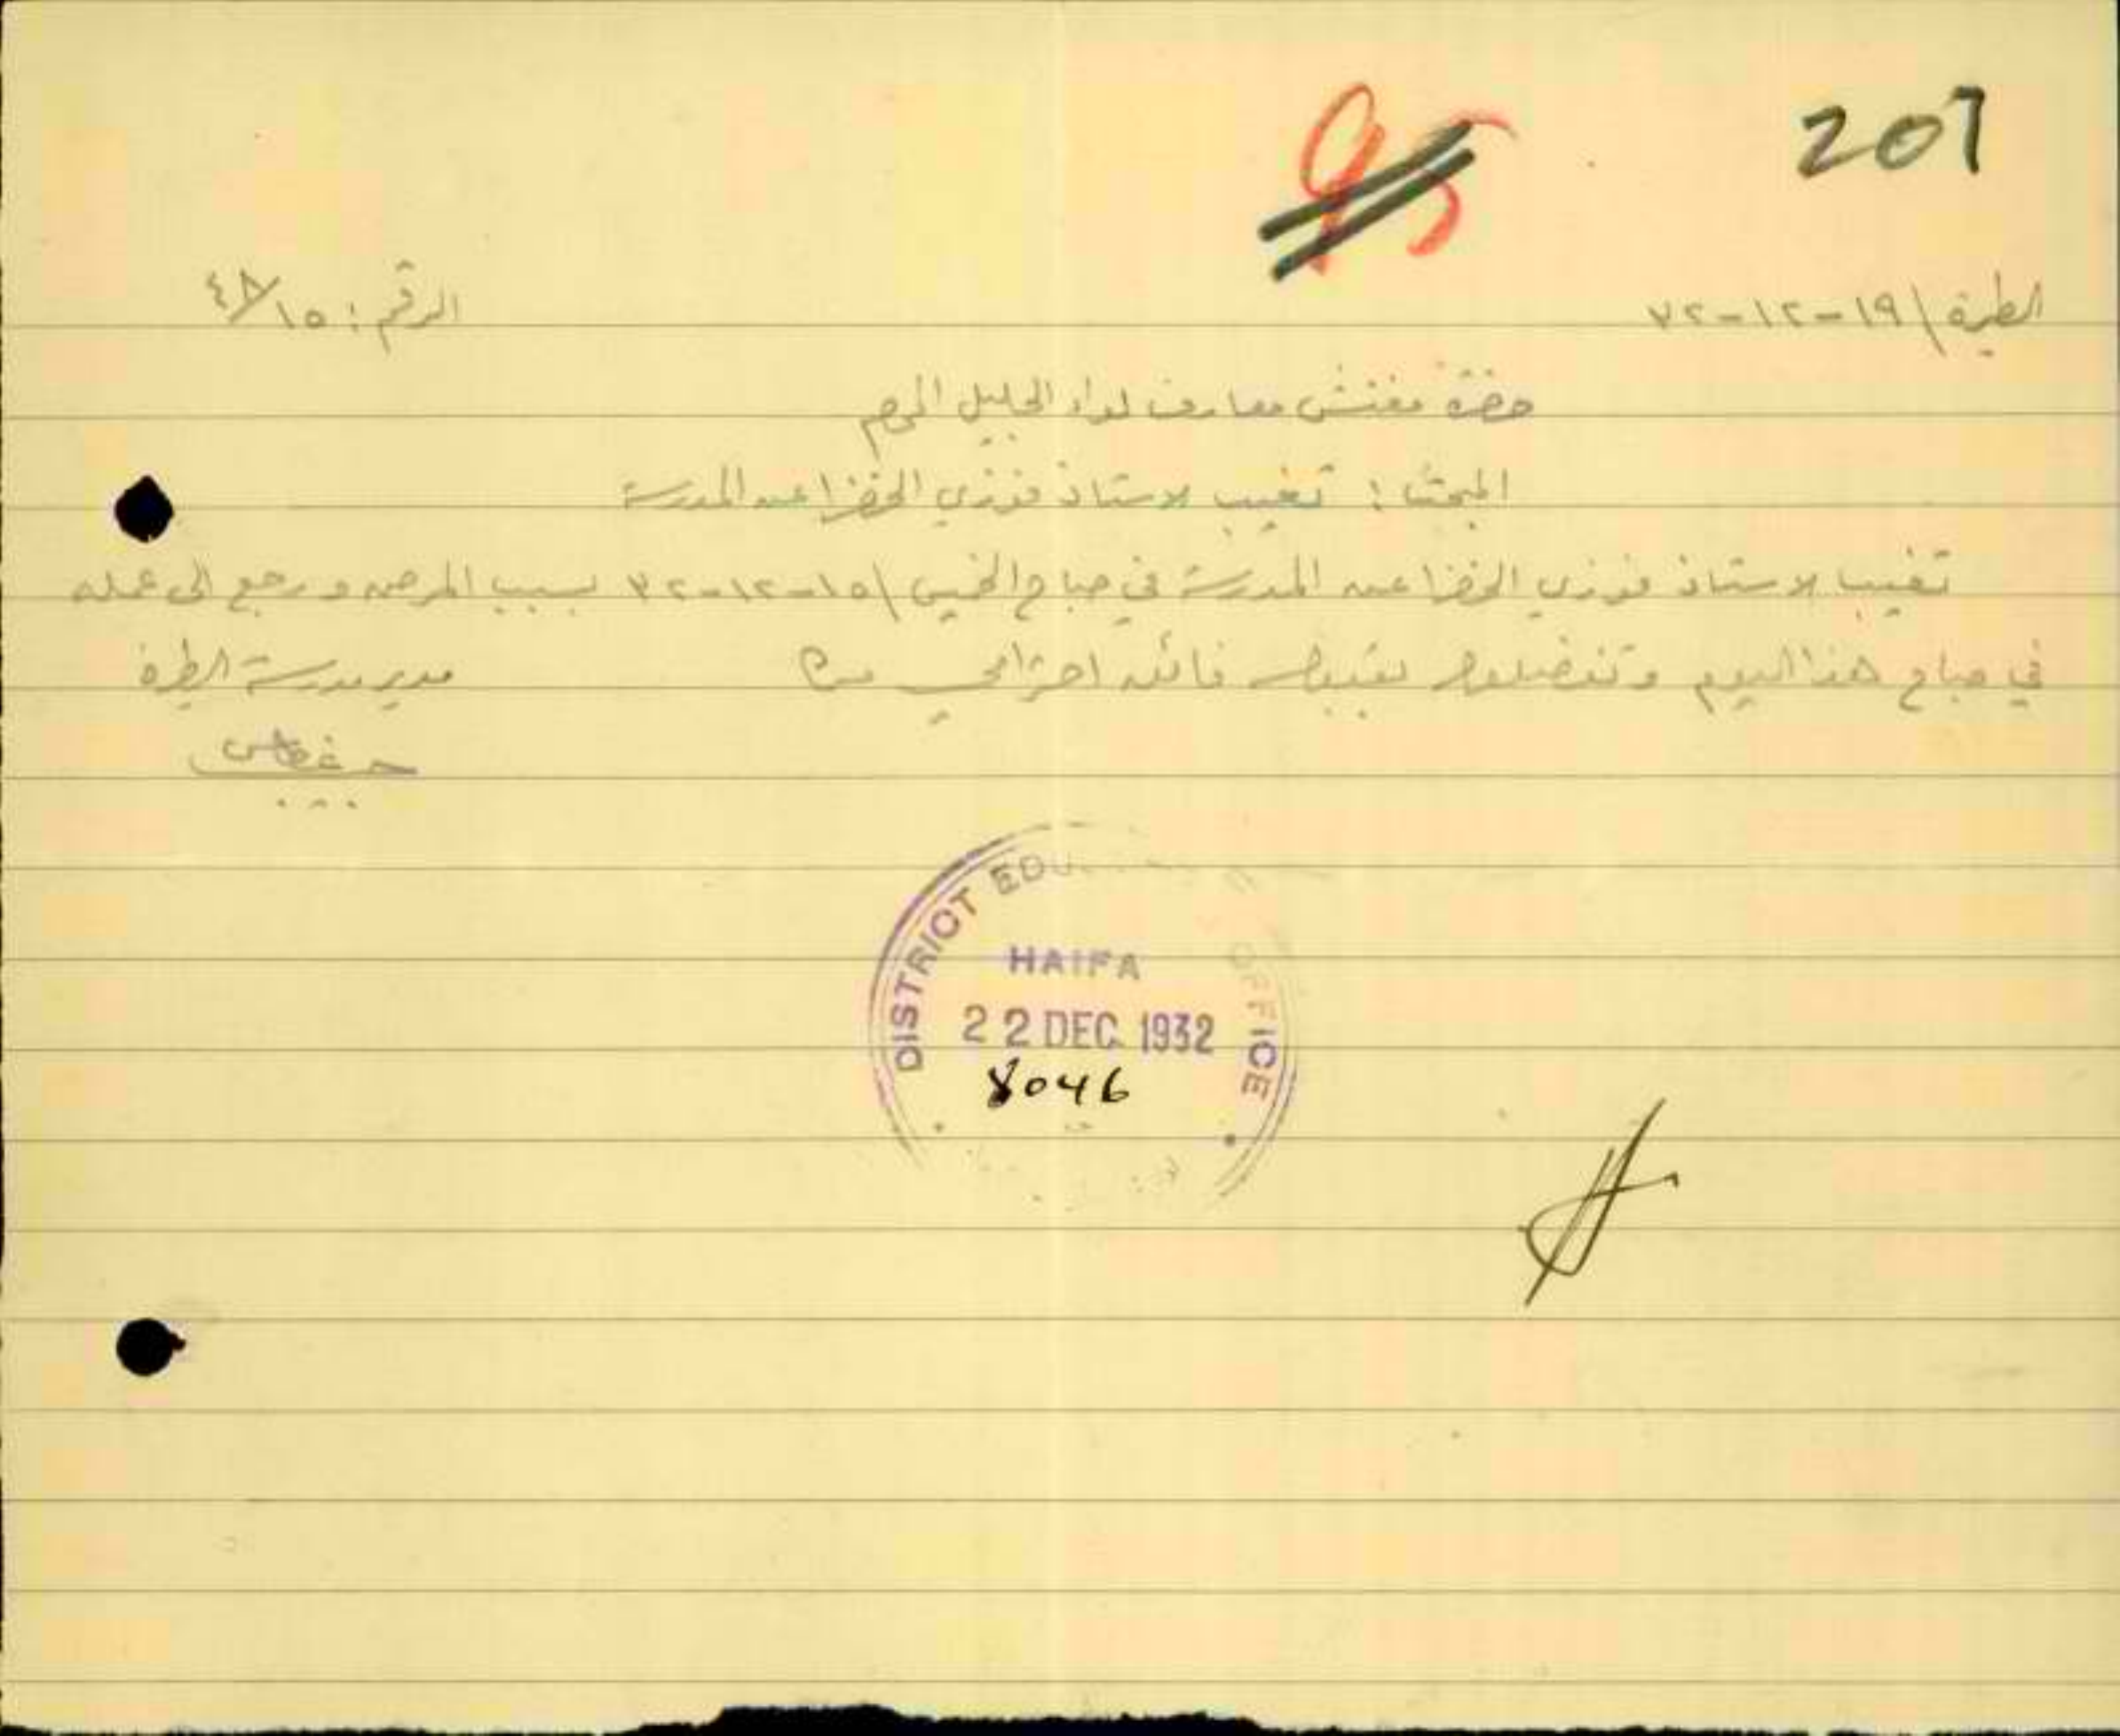 207
95
الطيرة \ ١٩-١٢-٣٢
الرقم : ١٥/٤٨
حضرة مفتش معارف لواء الجليل المحترم
المبحث : تغيب الاستاذ فوزي الخضرا عن المدرسة
تغيب الاستاذ فوزي الخضرا عن المدرسة في صباح الخميس \ ١٥-١٢-٣٢ بسبب المرض ورجع الى عمله
في صباح هذا اليوم وتفضلوا بقبول فائق احترامي
مدير مدرسة الطيرة
DISTRICT EDU OFFICE
HAIFA
22 DEC. 1932
8046